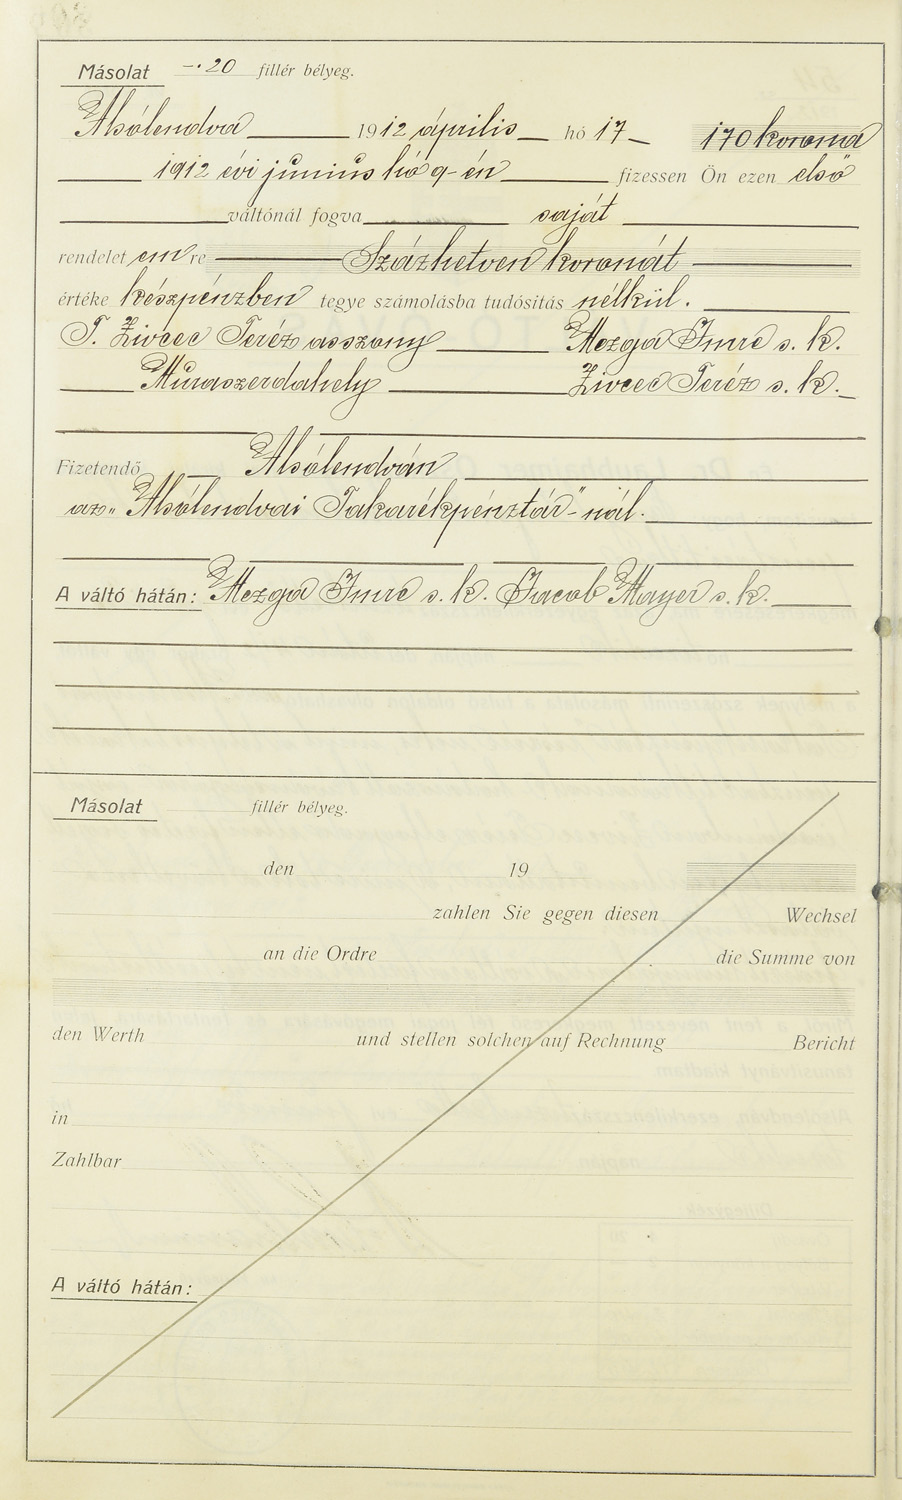 Másolat -·20 fillér bélyeg.
Alsólendva 1912 április hó 17 170 korona
1912 évi június hó 9-én fizessen Ön ezen első
váltónál fogva saját
rendelet em re Százhetven koronát
értéke készpénzben tegye számolásba tudósítás nélkül.
T. Zivcec Teréz asszony Mezga Imre s. k.
Muraszerdahely Zivcec Teréz s. k.
Fizetendő Alsólendván
az „Alsólendvai Takarékpénztár"-nál.
A váltó hátán: Mezga Imre s. k. Jacob Mayer s. k.
Másolat fillér bélyeg.
den 19
zahlen Sie gegen diesen Wechsel
an die Ordre die Summe von
den Werth und stellen solchen auf Rechnung Bericht
in
Zahlbar
A váltó hátán: